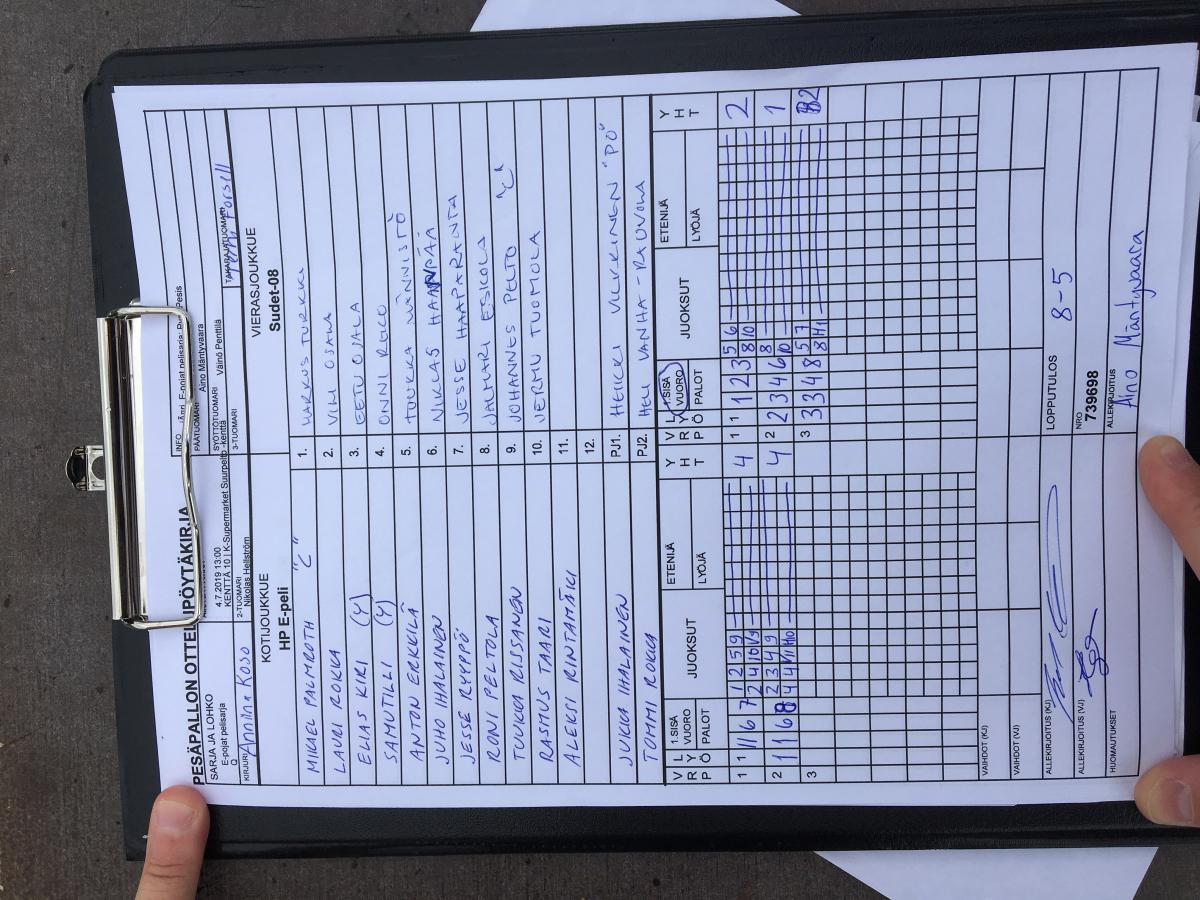 PESÄPALLON OTTELUPÖYTÄKIRJA
SARJA JA LOHKO
E-pojat pelisarja
Q
4.7.2019 13:00
KENTTÄ 10 | K-Supermarket Suurpelto -kenttä
INFO E-pojat pelisarja: Pesis
PÄÄTUOMARI
Aino Mäntyvaara
SYÖTTÖTUOMARI
Väinö Penttilä
KIRJURI Annina Koso
2-TUOMARI
Nikolas Hellström
3-TUOMARI
TAKARAJATUOMARI
Forsell
KOTIJOUKKUE
HP E-peli
VIERASJOUKKUE
Sudet-08
MIKAEL PALMROTH "C" 1. MARKUS TURKKI
LAURI ROKKA 2. VILI OSALA
ELIAS KIRI (Y) 3. EETU OJALA
SAMU TILLI (Y) 4. ONNI
ANTON ERKKILÄ 5. TUUKKA MÄNNISTÖ
JUHO IHALAINEN 6. NIKLAS HAANPÄÄ
JESSE RYYPPÖ 7. JESSE HAAPARANTA
RONI PELTOLA 8. JALMARI ESKOLA
TUUKKA RISSANEN 9. JOHANNES PELTO "C"
RASMUS TAARI 10. JERMU TUOMOLA
ALEKSI RINTAMÄKI 11.
12.
JUKKA IHALAINEN PJ1. HEIKKI VILKKINEN "PÖ"
TOMMI ROKKA PJ2. HELI VANHA-RAUVOLA
V L R Y P Ö 1.SISÄ VUORO PALOT JUOKSUT ETENIJÄ LYÖJÄ Y H T V L R Y P Ö 1.SISÄ VUORO PALOT JUOKSUT ETENIJÄ LYÖJÄ Y H T
1 1 11 6 7 1 2 5 9 4 1 1 1 2 3 5 6 2
2 4 10 8 10
2 1 1 6 8 2 3 4 9 4 2 2 3 4 6 8 1
4 4 10
3 3 3 3 4 8 5 7 2
8
VAIHDOT (KJ)
VAIHDOT (VJ)
ALLEKIRJOITUS (KJ)
LOPPUTULOS 8-5
ALLEKIRJOITUS (VJ)
NRO
739698
HUOMAUTUKSET
ALLEKIRJOITUS
Aino Mäntyvaara